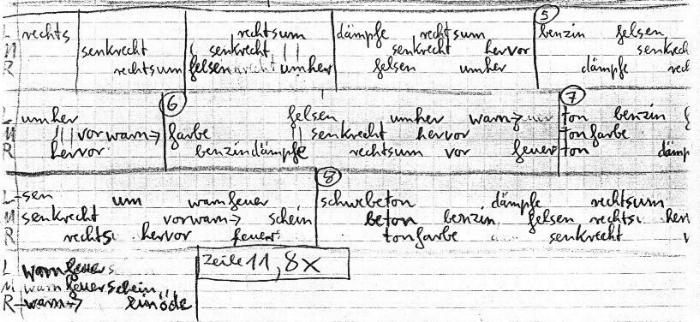 5
L rechts rechtsum dämpfe rechtsum benzin felsen
M senkrecht senkrecht senkrecht hervor senkrech
R rechtsum felsen umher felsen umher dämpfe rec
6 7
L umher felsen umher warn→ ton benzin
M vorwarn→ farbe senkrecht hervor tonfarbe
R hervor benzindämpfe rechtsum vor feuer ton dämp
8
L-sen um warnfeuer schwebeton dämpfe rechtsum
M senkrecht vorwarn→ schein beton benzin felsen rechts
R rechts hervor feuer tonfarbe senkrecht
L warnfeuers zeile 11, 8x
M warnfeuerschein
R-warn→ einöde